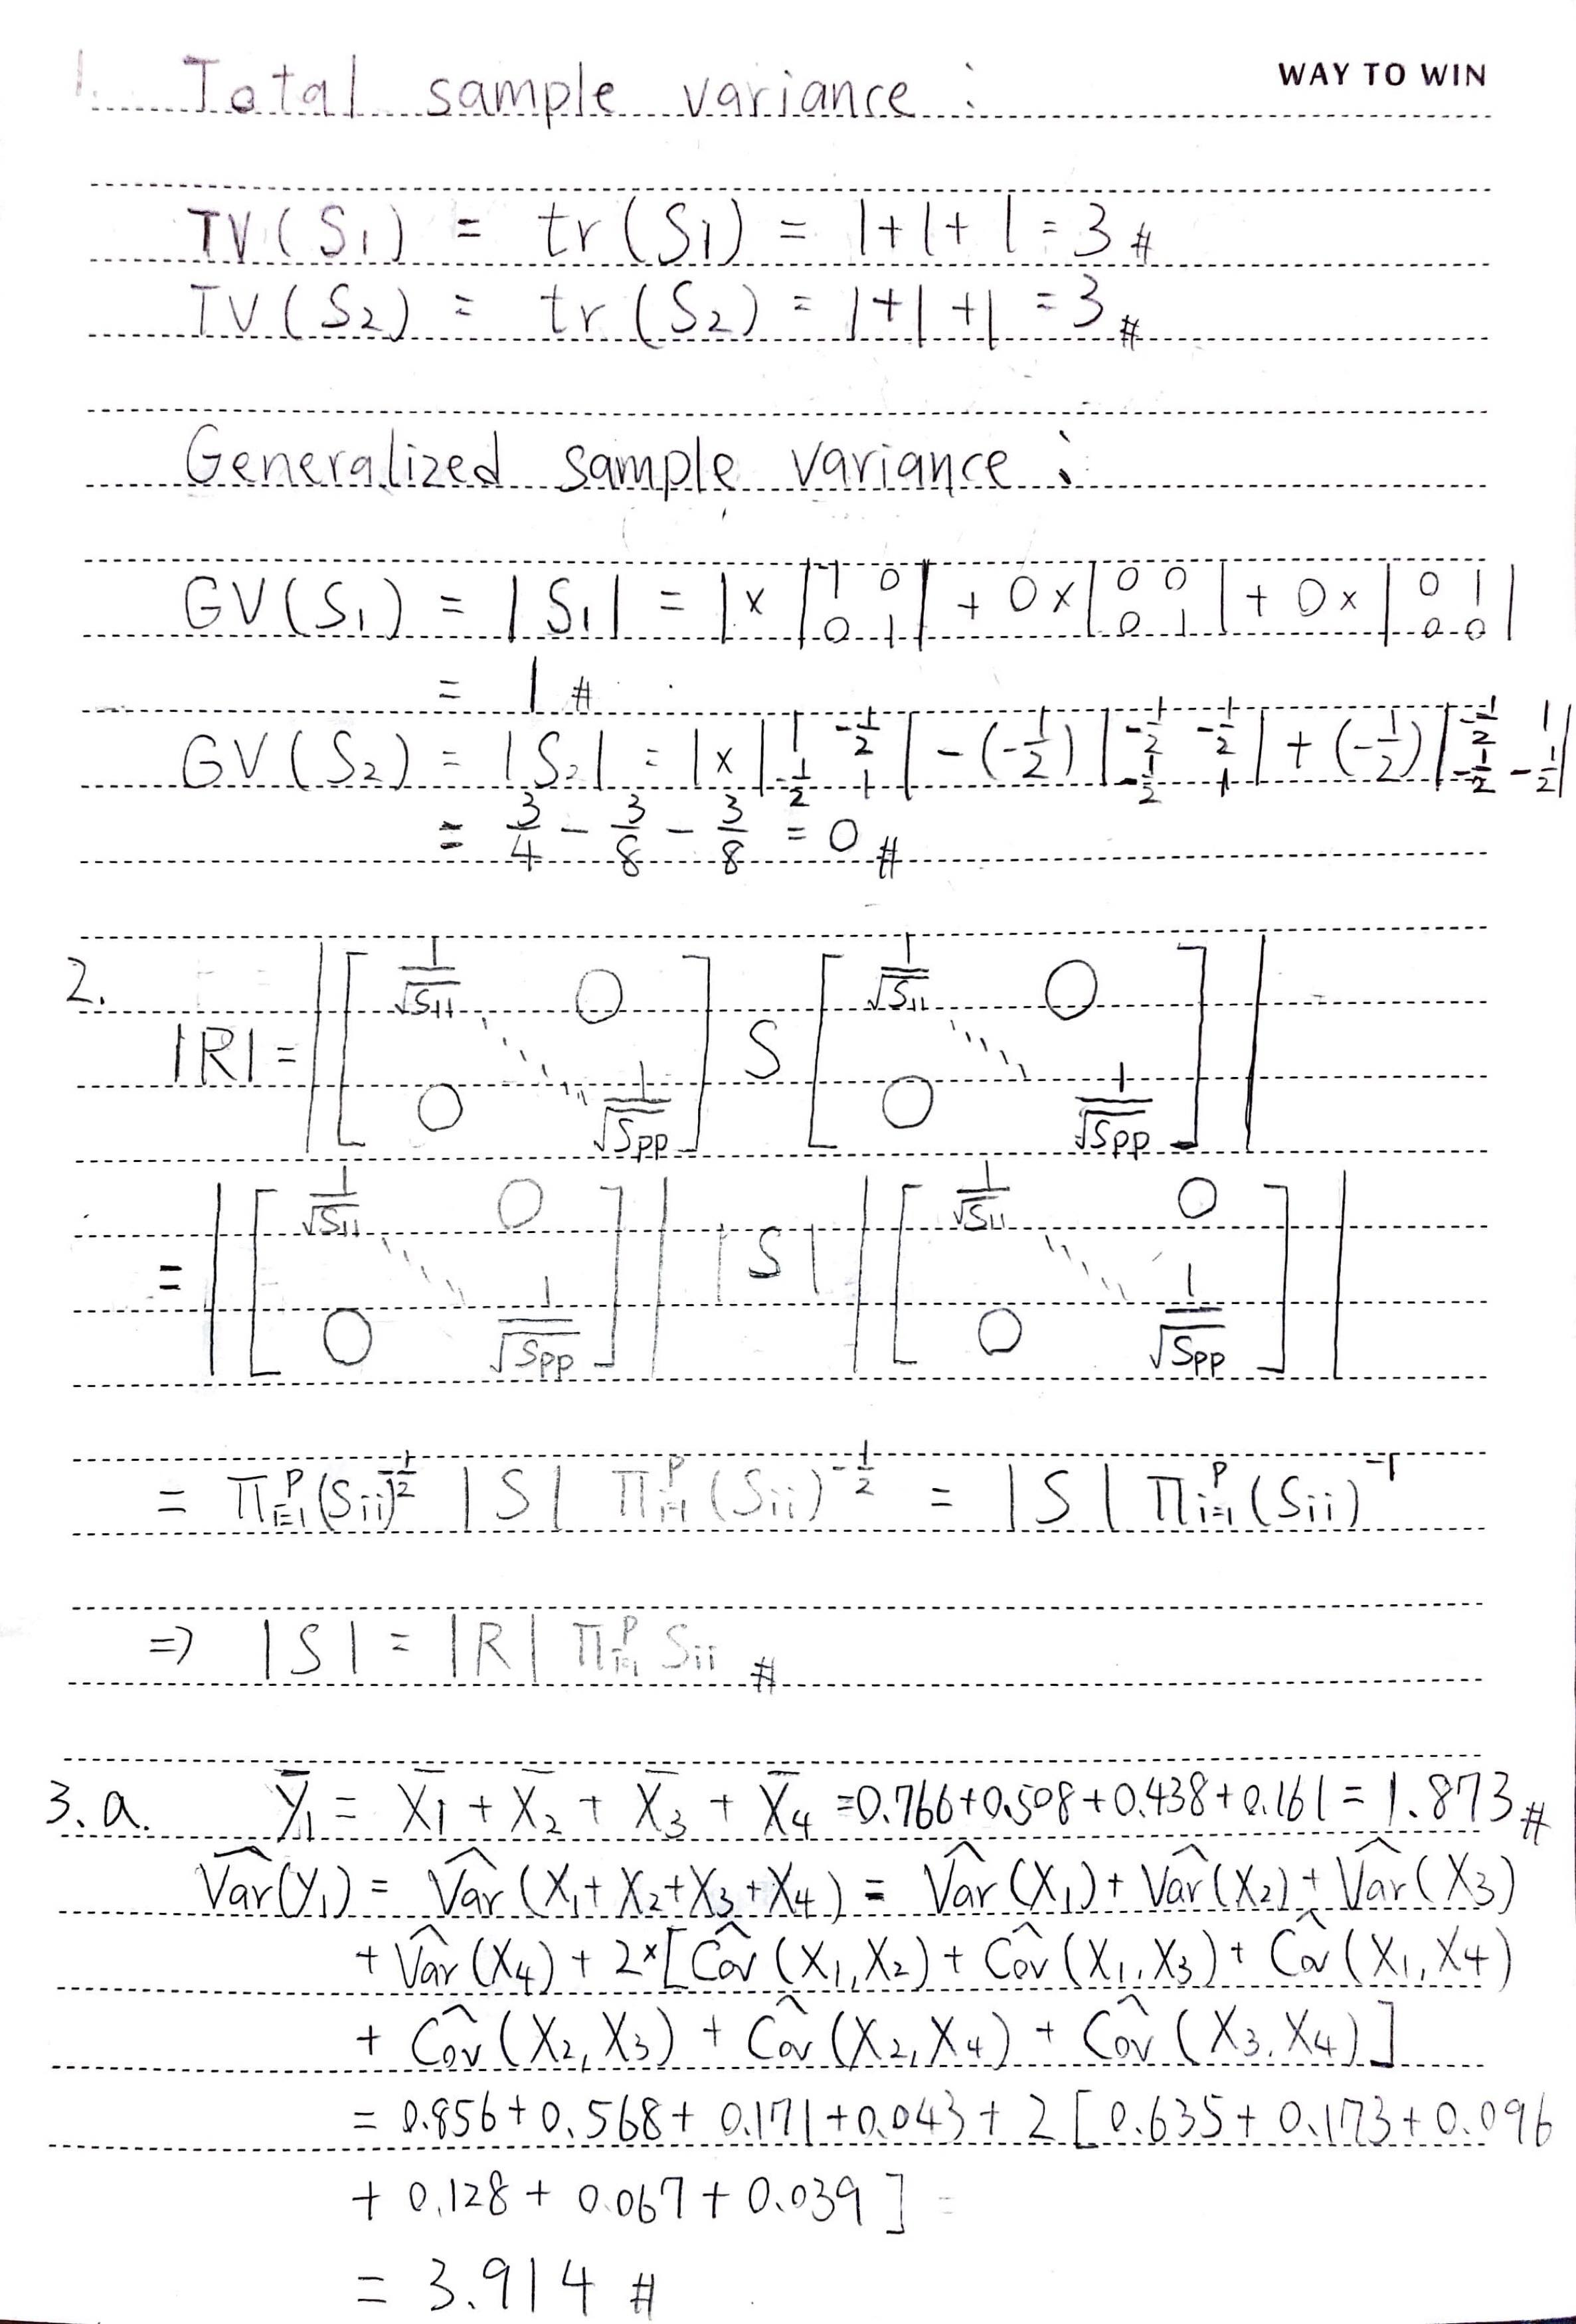 WAY TO WIN
1. Total sample variance :
TV(S₁) = tr(S₁) = 1+1+1 = 3 #
TV(S₂) = tr(S₂) = 1+1+1 = 3 #
Generalized sample variance :
GV(S₁) = |S₁| = 1× |1 0; 0 1| + 0× |0 0; 0 1| + 0× |0 1; 0 0|
= 1 #
GV(S₂) = |S₂| = 1× |1 -1/2; -1/2 1| - (-1/2) |-1/2 -1/2; -1/2 1| + (-1/2) |-1/2 1; -1/2 -1/2|
= 3/4 - 3/8 - 3/8 = 0 #
2.
|R| = | [1/√S₁₁ 0; ⋱; 0 1/√Spp] S [1/√S₁₁ 0; ⋱; 0 1/√Spp] |
= | [1/√S₁₁ 0; ⋱; 0 1/√Spp] | |S| | [1/√S₁₁ 0; ⋱; 0 1/√Spp] |
= Π_{i=1}^p (Sii)^{-1/2} |S| Π_{i=1}^p (Sii)^{-1/2} = |S| Π_{i=1}^p (Sii)^{-1}
⇒ |S| = |R| Π_{i=1}^p Sii #
3.a. Y̅₁ = X̅₁ + X̅₂ + X̅₃ + X̅₄ = 0.766+0.508+0.438+0.161 = 1.873 #
Var̂(Y₁) = Var̂(X₁+X₂+X₃+X₄) = Var̂(X₁) + Var̂(X₂) + Var̂(X₃)
+ Var̂(X₄) + 2×[Cov̂(X₁,X₂) + Cov̂(X₁,X₃) + Cov̂(X₁,X₄)
+ Cov̂(X₂,X₃) + Cov̂(X₂,X₄) + Cov̂(X₃,X₄)]
= 0.856+0.568+0.171+0.043+2[0.635+0.173+0.096
+ 0.128+0.067+0.039]
= 3.914 #